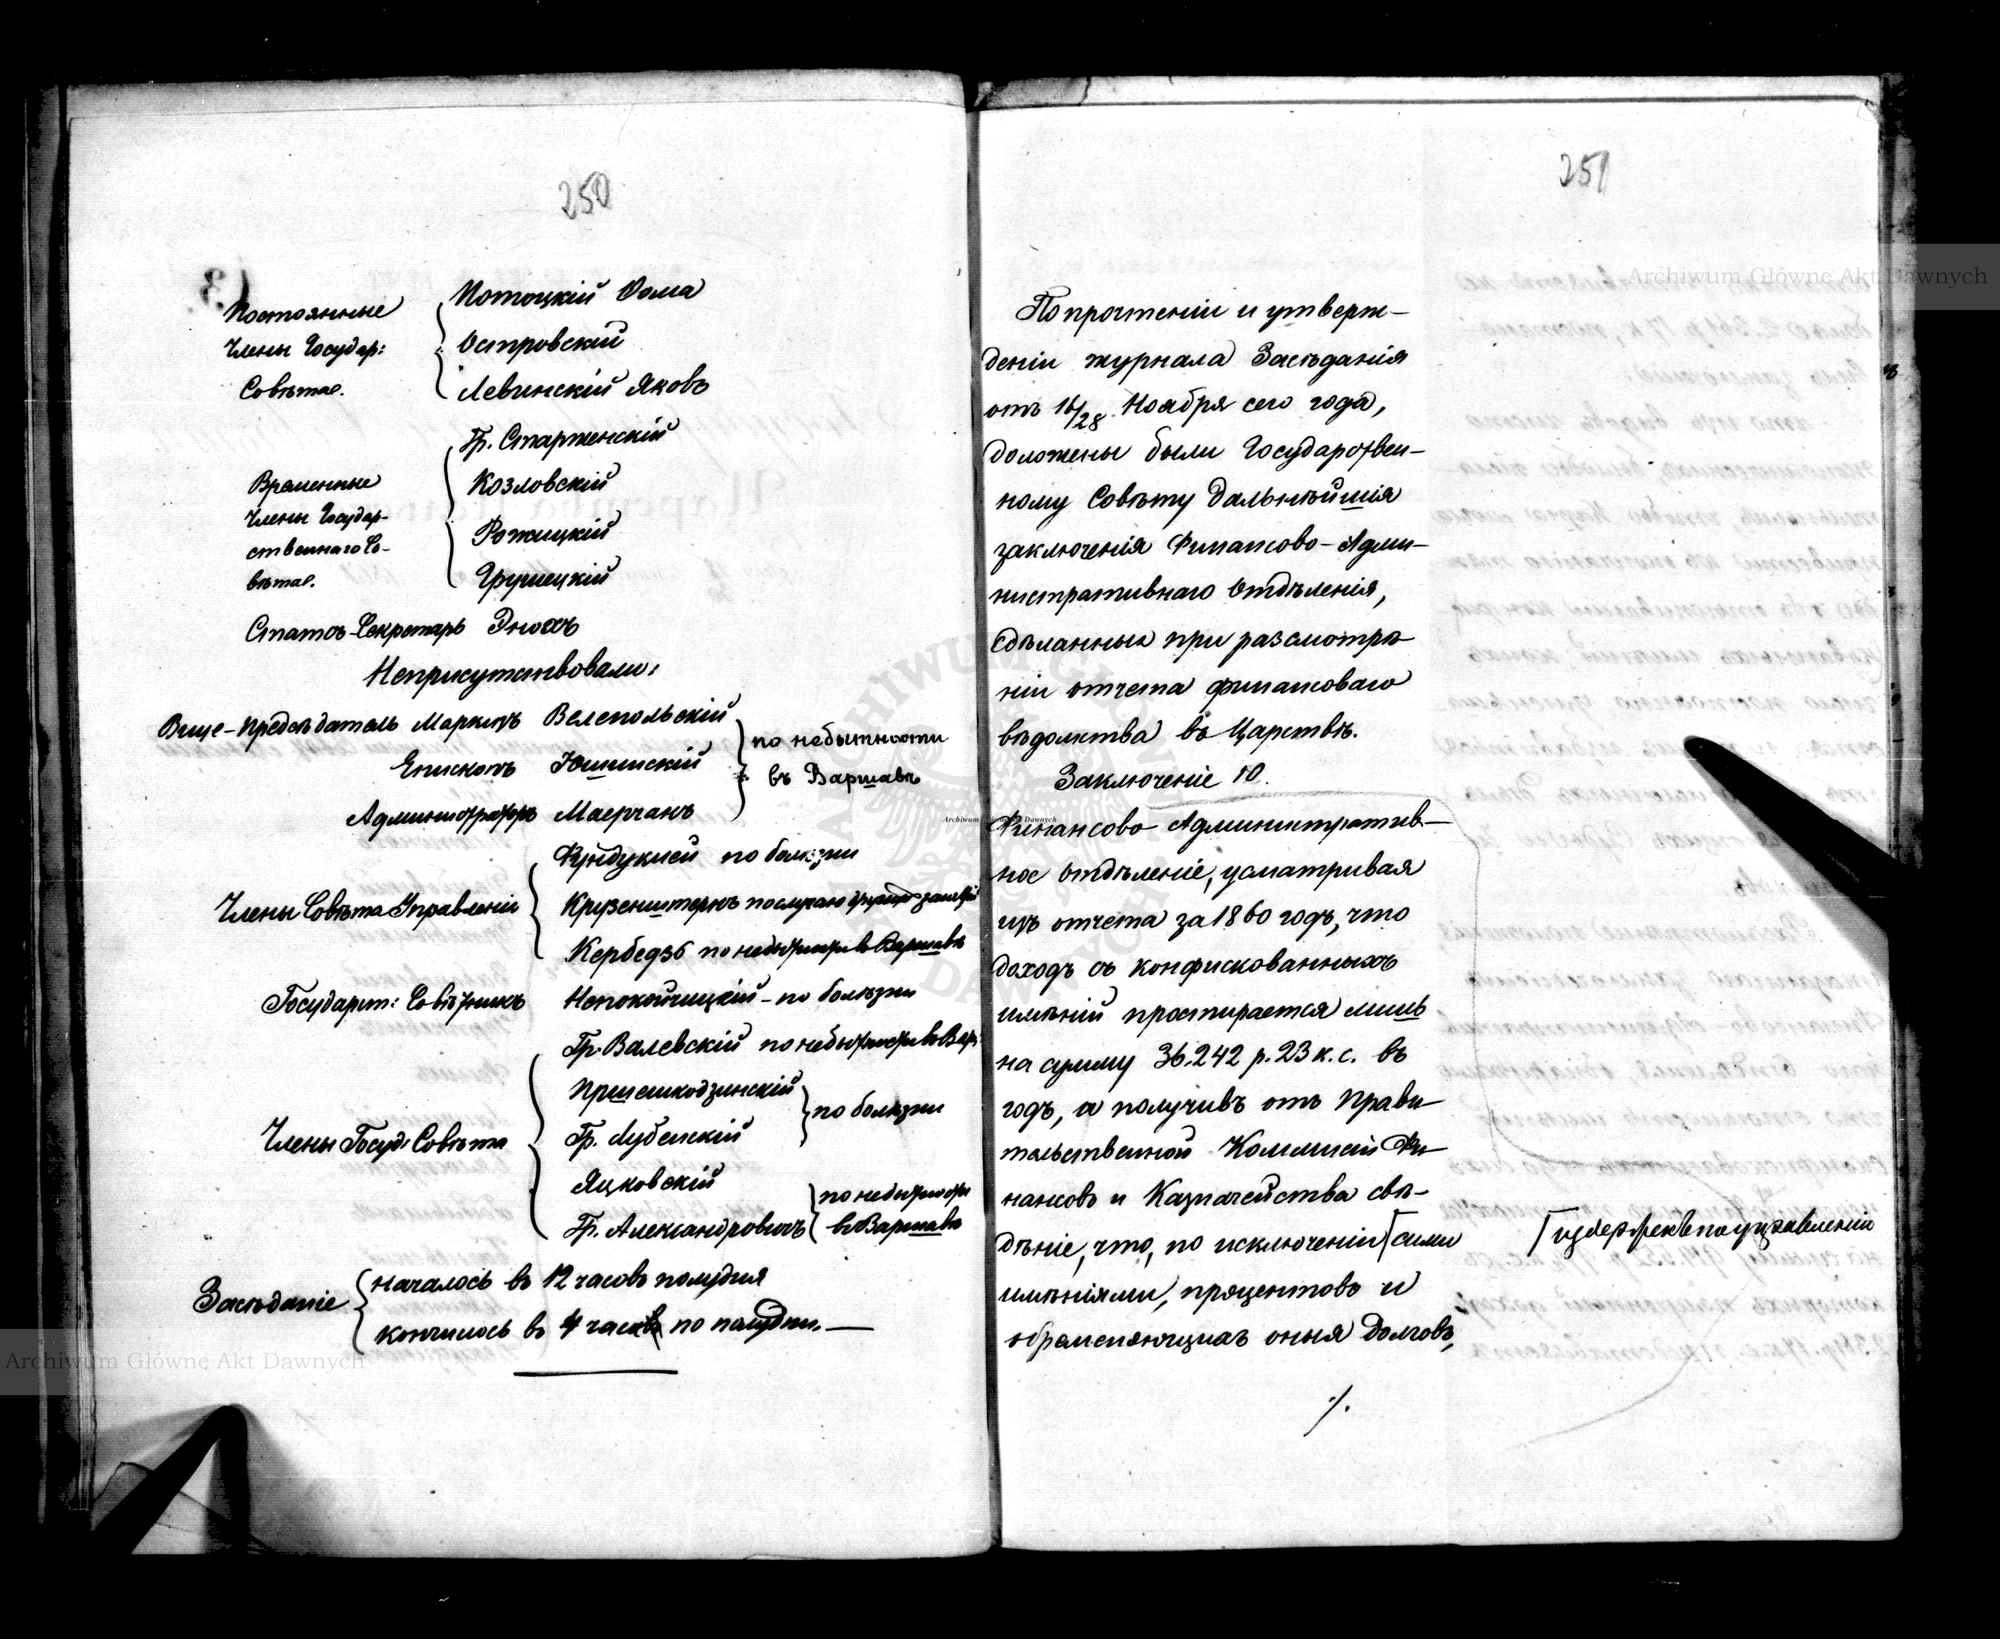 250
Постоянные
Члены Государ:
Совѣта.
Потоцкій Ѳома
Островскій
Левинскій Яковъ
Временные
Члены Государ-
ственнаго Со-
вѣта.
Гр. Старженскій
Козловскій
Рожицкій
Грушецкій
Статсъ-Секретарь Энохъ
Неприсутствовали:
Вице-Предсѣдатель Маркизъ Велепольскій
Епископъ Юшинскій
Администраторъ Маерчакъ
по небытности
въ Варшавѣ
Члены Совѣта Управленія
Фундуклей по болѣзни
Крузенштернъ по случаю занятій
Кербедзъ по небытности въ Варшавѣ
Государст: Совѣтникъ Непокойчицкій - по болѣзни
Члены Госуд: Совѣта
Гр. Валевскій по небытности въ Вар:
Пршешкодзинскій
Гр. Лубенскій
по болѣзни
Яцковскій
Гр. Александровичъ
по небытности
въ Варшавѣ
Засѣданіе
началось въ 12 часовъ полудня
кончилось въ 4 часа по полудни. —
251
По прочтеніи и утверж-
деніи журнала Засѣданія
отъ 16/28 Ноября сего года,
доложены были Государствен-
ному Совѣту дальнѣйшія
заключенія Финансово-Адми-
нистративнаго Отдѣленія,
сдѣланныя при разсмотрѣ-
ніи отчета финансоваго
вѣдомства въ Царствѣ.
Заключеніе 10.
Финансово Административ-
ное Отдѣленіе, усматривая
изъ отчета за 1860 годъ, что
доходъ съ конфискованныхъ
имѣній простирается лишь
на сумму 36.242 р. 23 к. с. въ
годъ, и получивъ отъ Прави-
тельственной Коммисіи Фи-
нансовъ и Казначейства свѣ-
дѣніе, что, по исключеніи сими
имѣніями, процентовъ и
обременяющихъ оныя долговъ,
издержекъ по управленію
./.
Archiwum Główne Akt Dawnych
Archiwum Główne Akt Dawnych
Archiwum Główne Akt Dawnych